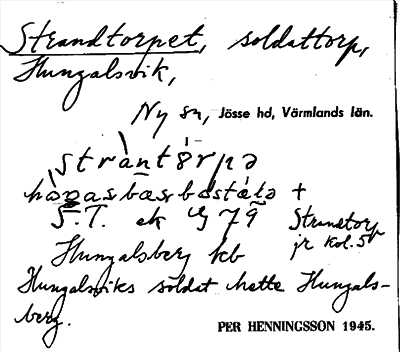 Strandtorpet, soldattorp,
Hungalsvik,
Ny sn, Jösse hd, Värmlands län.
stràntörpə
hòŋasbæsbostátə +
S.T. ek 79 Strandtorp
jr kol. 5
Hungalsberg kb
Hungalsviks soldat hette Hungals-
berg.
PER HENNINGSSON 1945.